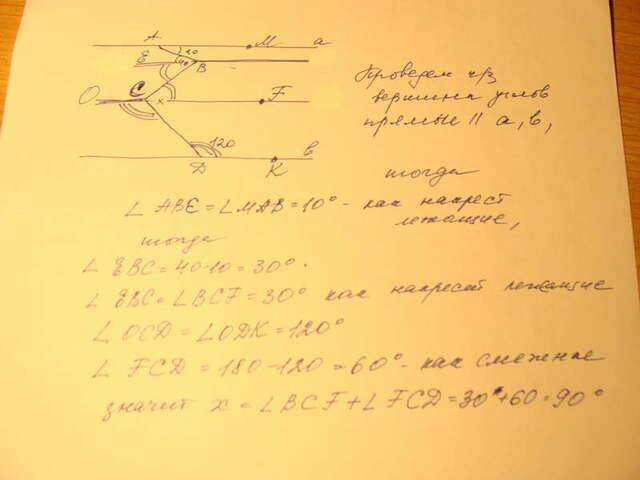 A
20
M
a
E
40
B
O
C
x
F
120
в
D
K
Проведем ч/з
вершина углов
прямые || a, в,
тогда
∠ ABE = ∠MAB = 10° - как накрест
лежащие,
тогда
∠ EBC = 40-10 = 30°.
∠ EBC = ∠BCF = 30° как накрест лежащие
∠ OCD = ∠ODK = 120°
∠ FCD = 180-120 = 60° - как смежные
значит x = ∠BCF + ∠FCD = 30°+60 = 90°